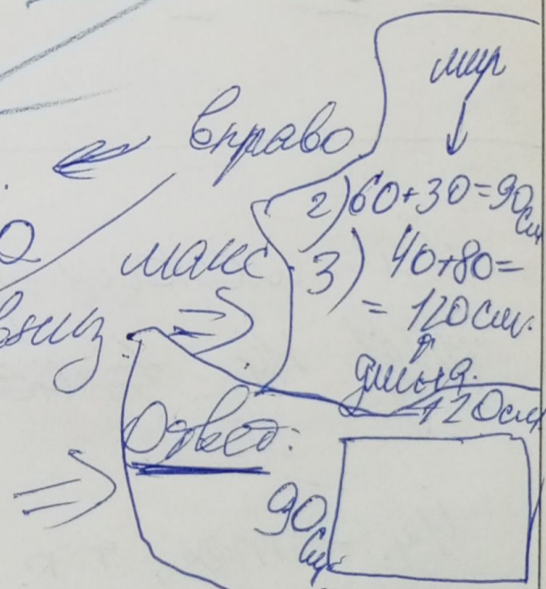 шир
вправо
2) 60+30=90 см
макс 3) 40+80=
вниз = 120 см.
длина.
120 см
Ответ:
90 см